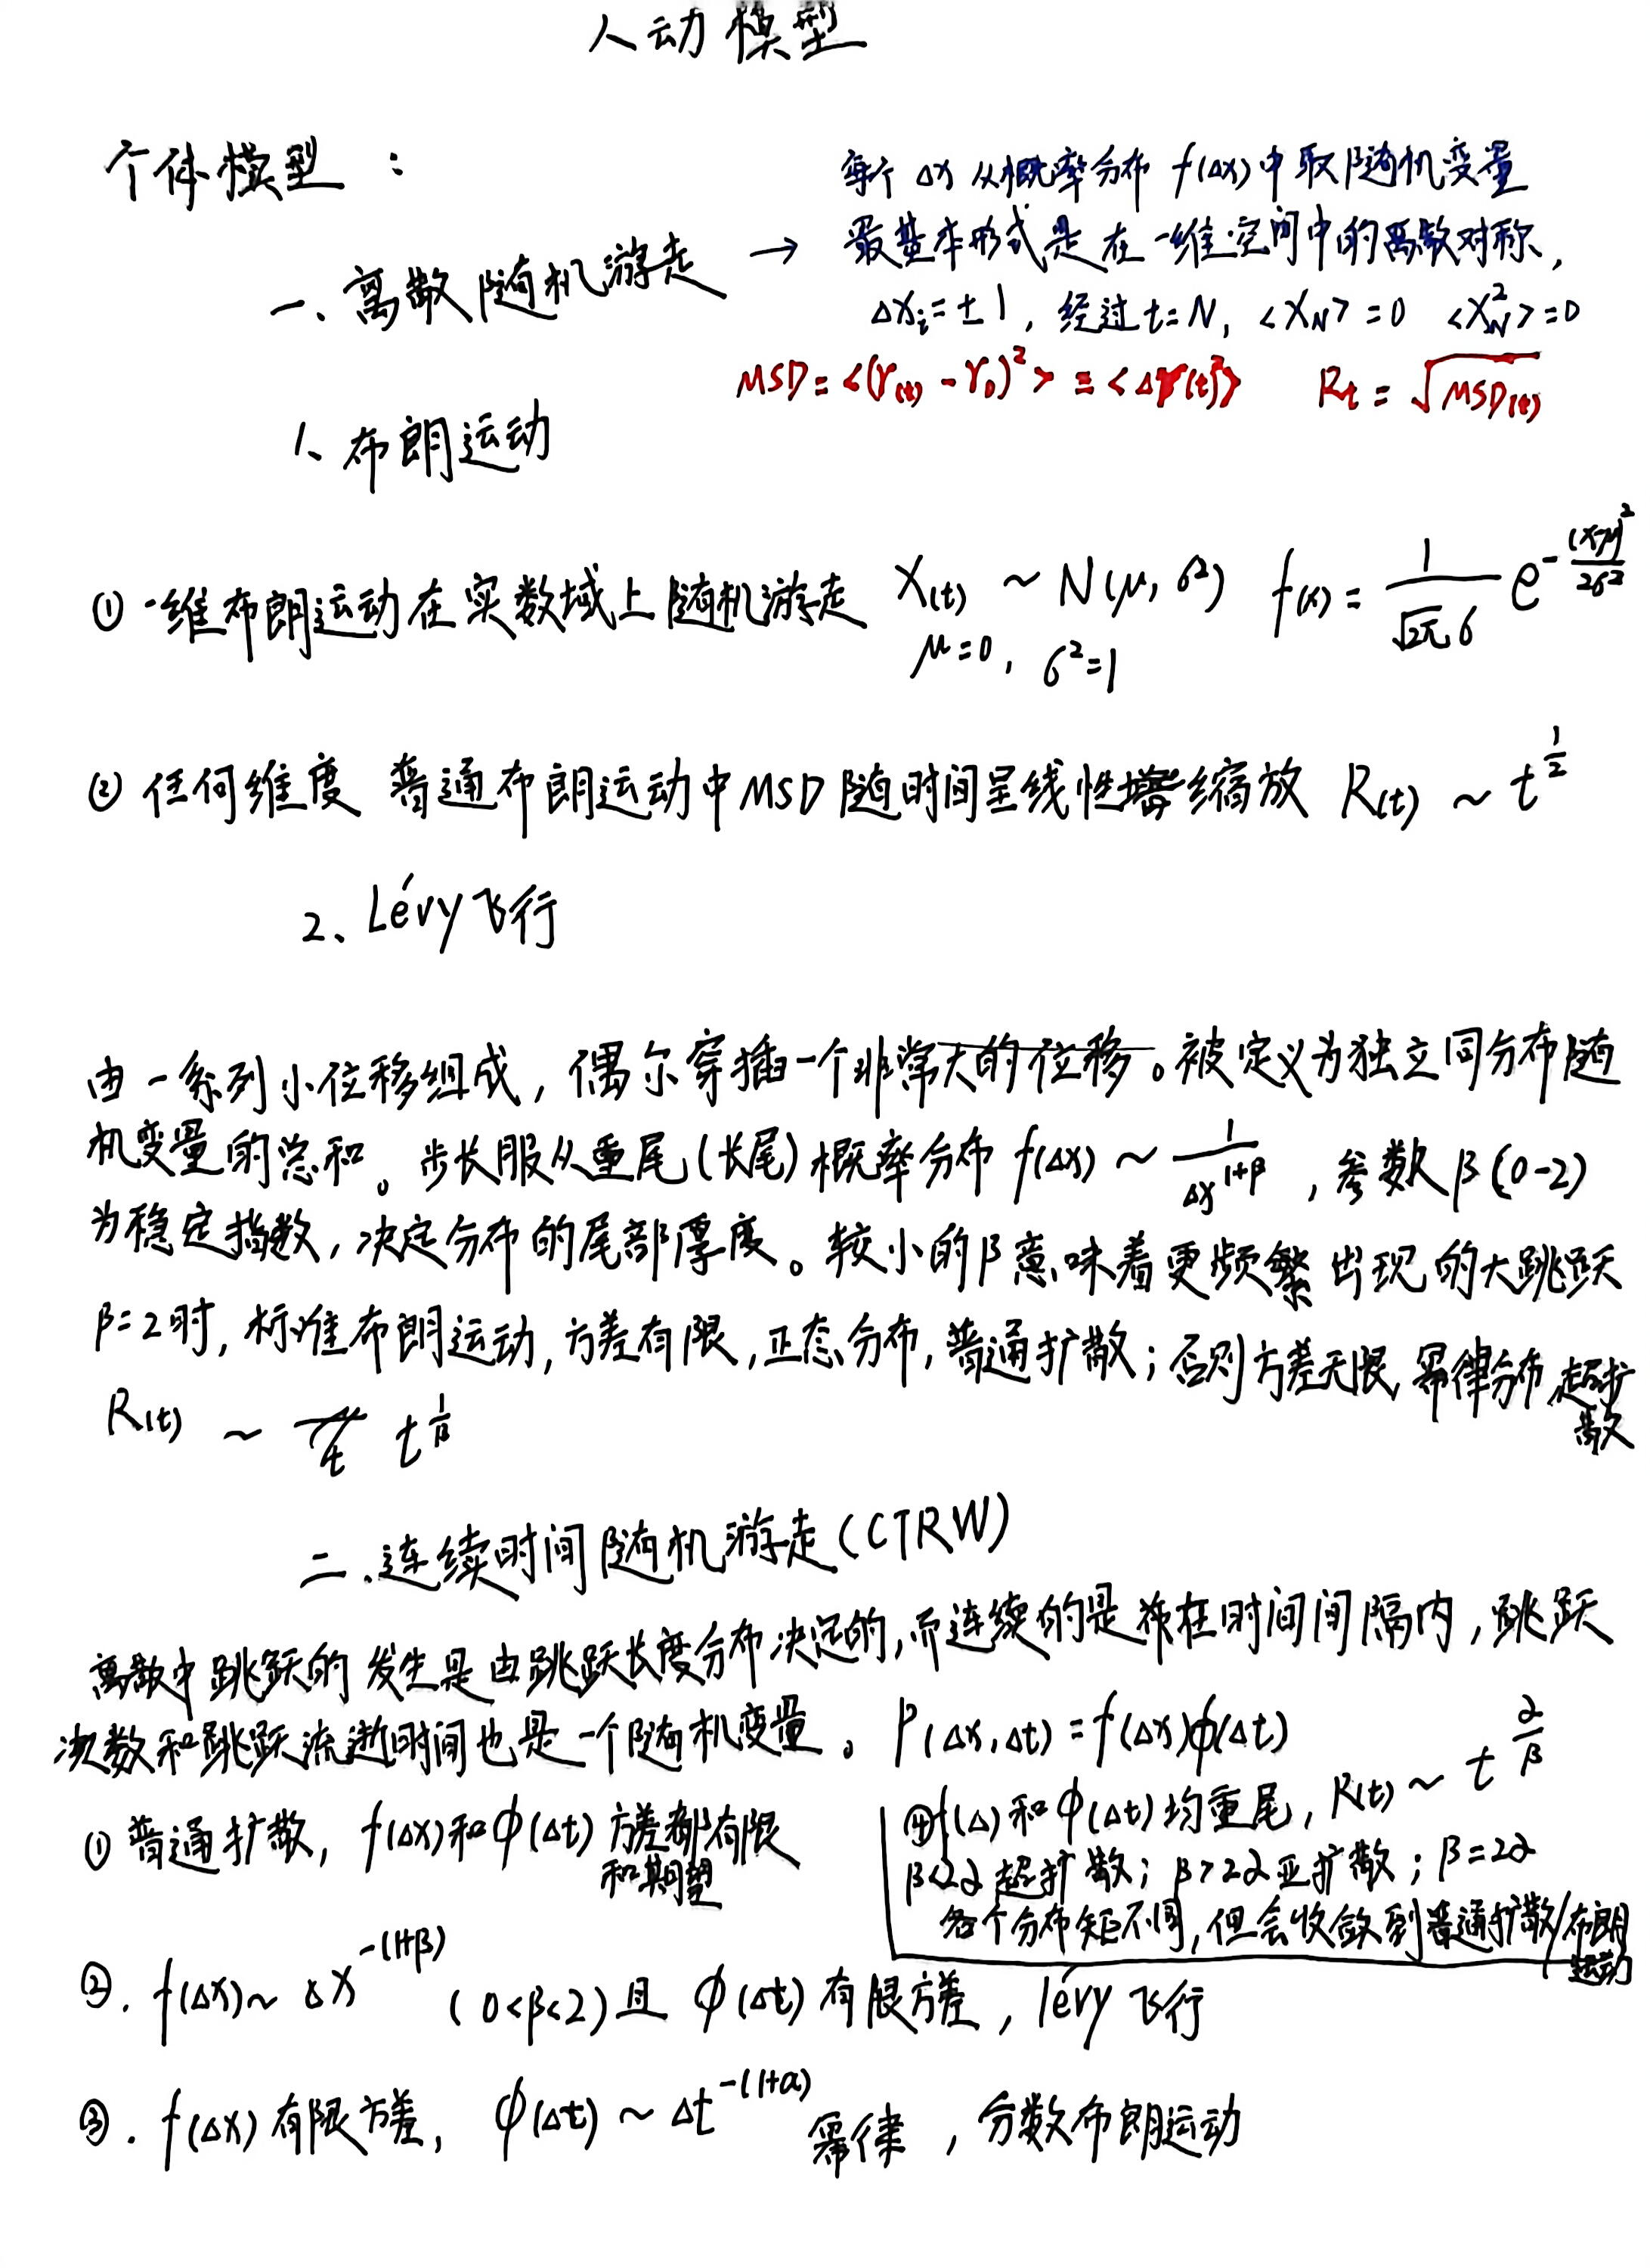 人动模型
个体模型：
每个 Δx 从概率分布 f(Δx)中取随机变量
一、离散随机游走 → 最基本形式是在一维空间中的离散对称,
Δxᵢ=±1, 经过t=N, <X_N>=0 <X_N²>=0
MSD=<(r(t)-r₀)²> ≡ <Δr(t)²> Rt=√MSD(t)
1、布朗运动
① 一维布朗运动在实数域上随机游走 X(t) ~ N(μ, σ²) f(x)= 1/(√2π σ) e^-(x-μ)²/2σ²
μ=0, σ²=1
② 任何维度 普通布朗运动中MSD随时间呈线性缩放 R(t) ~ t^1/2
2、Lévy飞行
由一系列小位移组成, 偶尔穿插一个非常大的位移。被定义为独立同分布随
机变量的总和。步长服从重尾(长尾)概率分布 f(Δx) ~ 1/Δx^1+β , 参数β(0-2)
为稳定指数, 决定分布的尾部厚度。较小的β意味着更频繁出现的大跳跃
β=2时, 标准布朗运动, 方差有限, 正态分布, 普通扩散; 否则方差无限, 幂律分布, 超扩
散
R(t) ~ t^1/β
二、连续时间随机游走(CTRW)
离散中跳跃的发生是由跳跃长度分布决定的, 而连续的是在时间间隔内, 跳跃
次数和跳跃流逝时间也是一个随机变量。P(Δx,Δt)=f(Δx)φ(Δt)
① 普通扩散, f(Δx)和φ(Δt)方差都有限
和期望
④f(Δ)和φ(Δt)均重尾, R(t) ~ t^α/β
β<2α 超扩散; β>2α亚扩散; β=2α
各个分布矩不同, 但会收敛到普通扩散/布朗
运动
②. f(Δx)~ Δx^-(1+β) (0<β<2)且 φ(Δt)有限方差, lévy飞行
③. f(Δx)有限方差, φ(Δt) ~ Δt^-(1+α) 幂律, 分数布朗运动